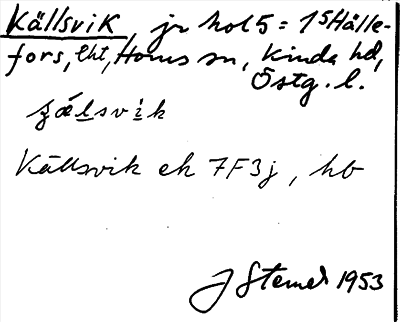 Källsvik, jr hol 5 = 1⁵ Hälle-
fors, lht, Horns sn, Kinda hd,
Östg. l.
Källsvik ek 7F3j, hb
J Stemer 1953